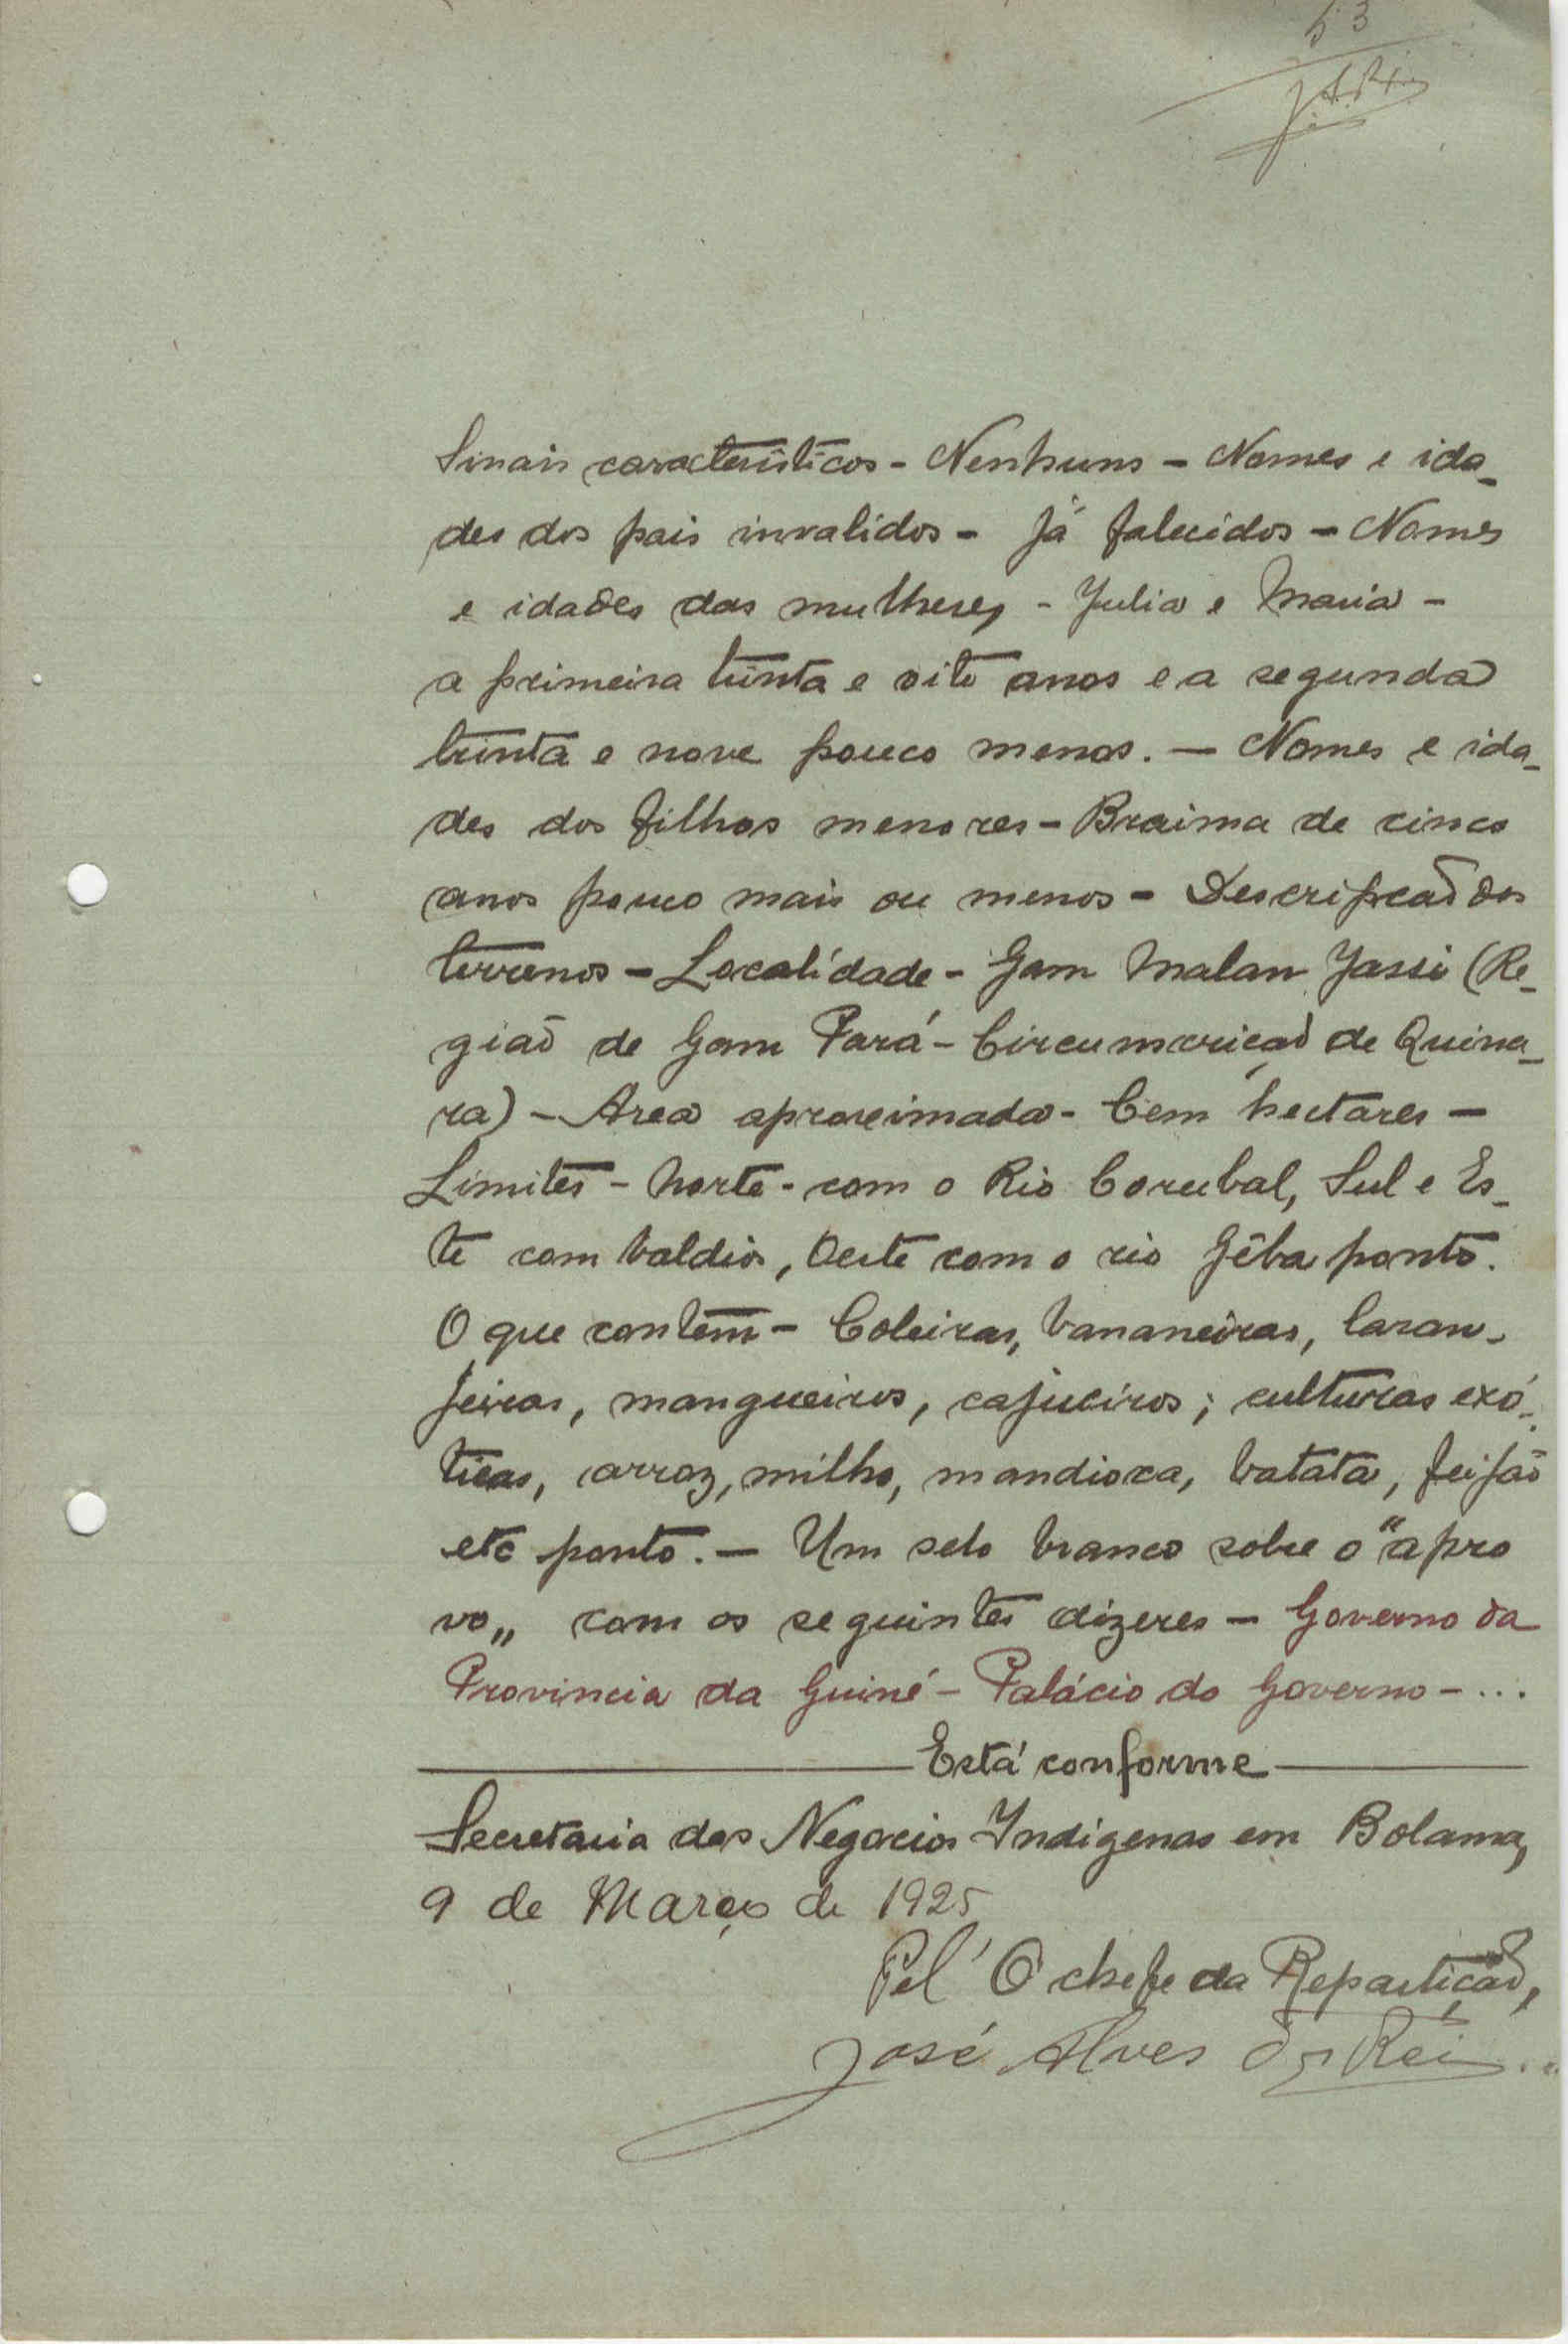 53
J.A.R.
Sinais caracteristicos - Nenhuns - Nomes e ida-
des dos pais invalidos - Já falecidos - Nomes
e idades das mulheres - Julia e Maria -
a primeira trinta e oito anos e a segunda
trinta e nove pouco menos. - Nomes e ida-
des dos filhos menores - Braima de cinco
anos pouco mais ou menos - Descripção dos
terrenos - Localidade - Gam Malan Jassi (Re-
gião de Gam Pará - Circumscrição de Quina-
ra) - Area aproximada - Cem hectares -
Limites - Norte - com o Rio Corubal, Sul e Es-
te com baldios, Oeste com o rio Gêba ponto.
O que contêm - Coleiras, bananeiras, laran-
jeiras, mangueiros, cajueiros; culturas exó-
ticas, arroz, milho, mandioca, batata, feijão
etc ponto. - Um selo branco sobre o "apro
vo„ com os seguintes dizeres - Governo da
Provincia da Guiné - Palácio do Governo - ...
Está conforme
Secretaria dos Negocios Indigenas em Bolama,
9 de Março de 1925
Pel' O chefe da Repartição,
José Alves dos Reis